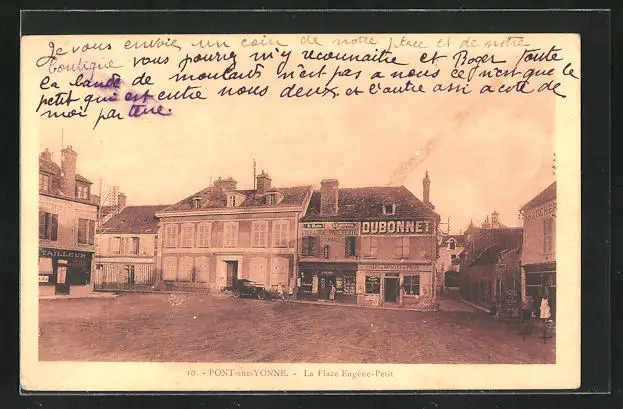 Je vous envoie un coin de notre place et de notre
boutique vous pourez m'y reconnaitre et Roger Toute
la bande de moutards n'est pas a nous ce n'est que le
petit qui est entre nous deux, et l'autre assi a coté de
moi par terre.
TAILLEUR
DUBONNET
BOUCHERIE
10. - PONT-sur-YONNE. - La Place Eugène-Petit